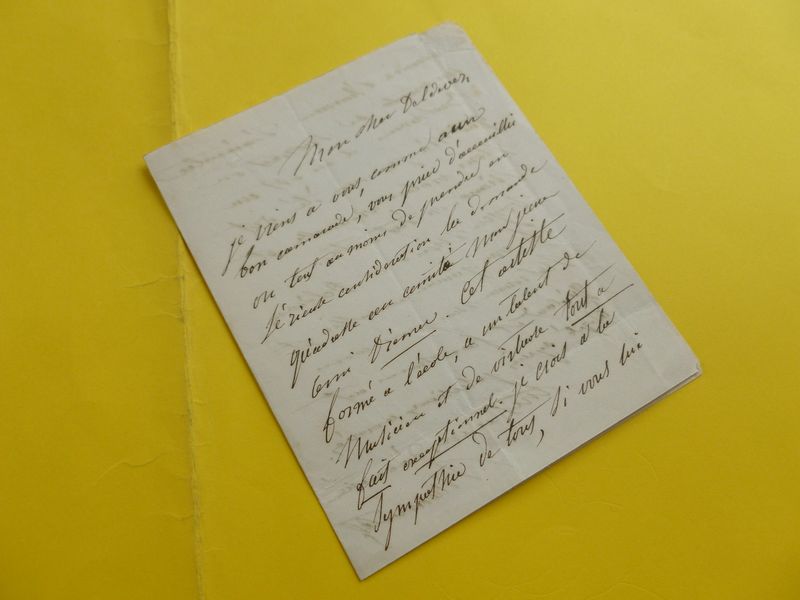 Mon cher Deldevez
je viens à vous, comme à un
bon camarade, vous prier d'accueillir
ou tout au moins de prendre en
sérieuse considération la demande
qu'adresse au comité mon jeune
ami Diémer. Cet artiste
formé a l'école, a un talent de
Musicien et de virtuose tout a
fait exceptionnel. je crois à la
Sympathie de tous, si vous lui